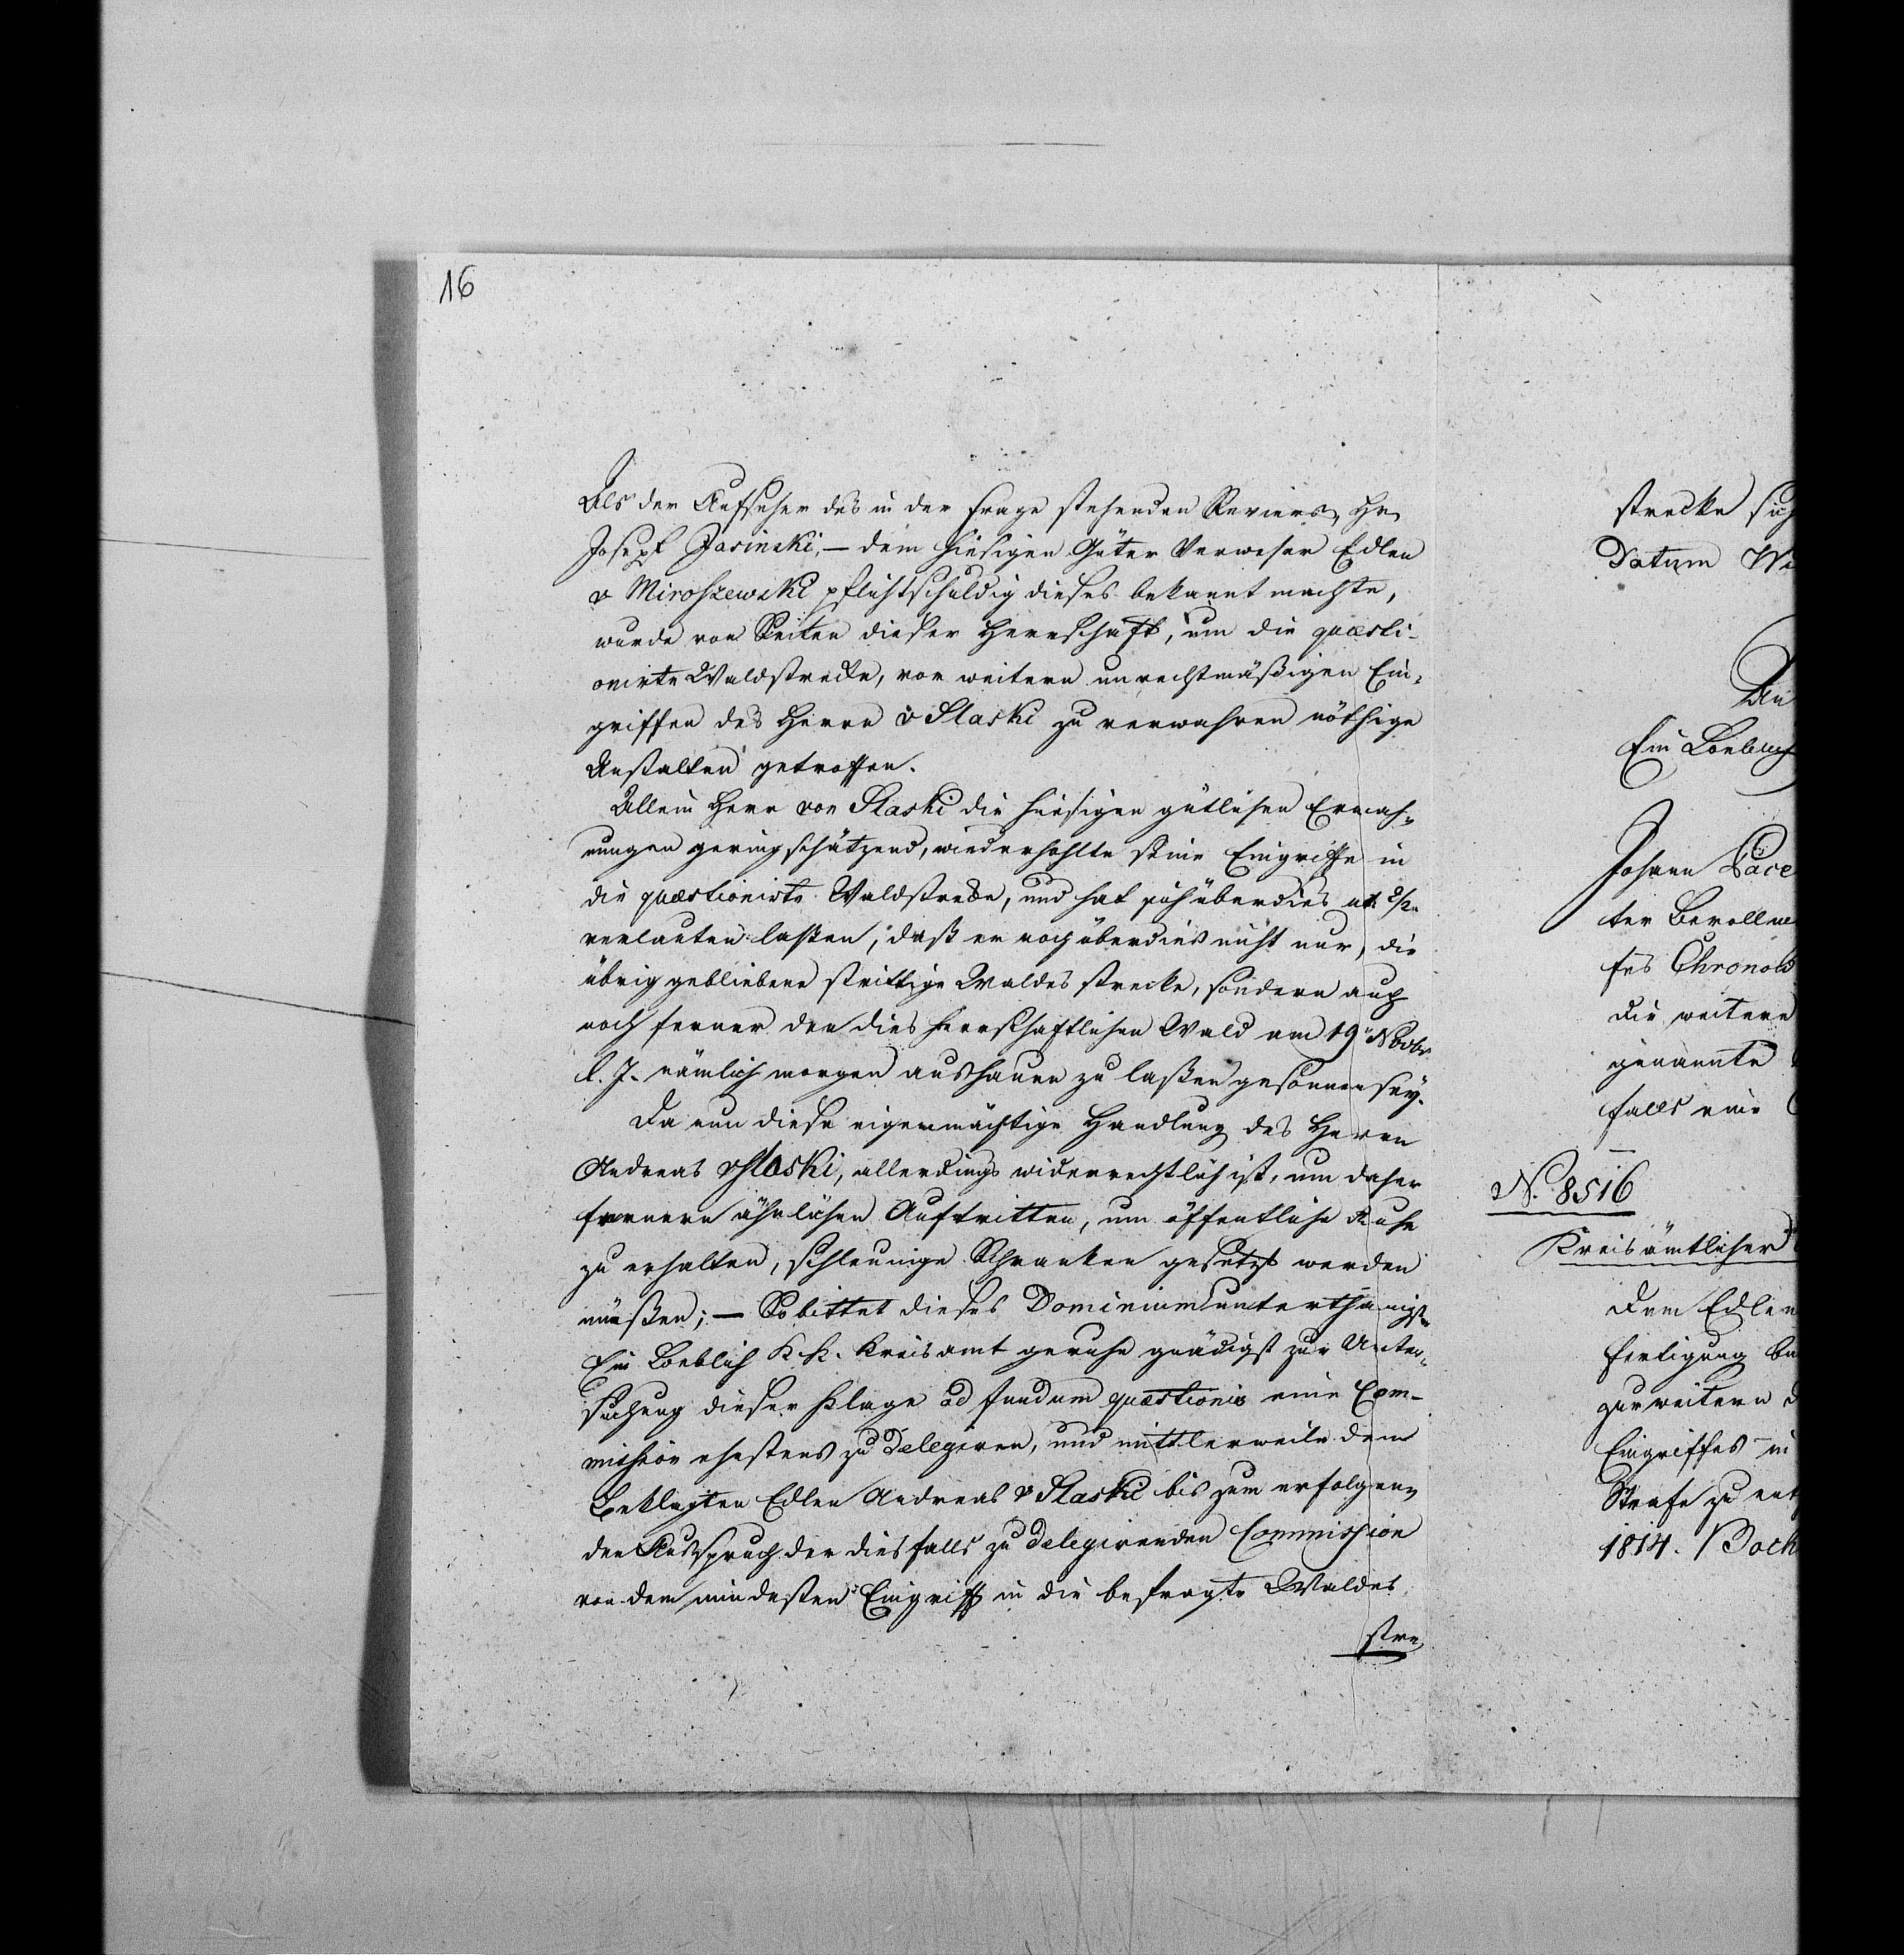 16
Als der Aufseher des in der Frage stehenden Reviers, Hr.
Joseph Jasinski, — dem hiesigen Güter Verweser Edlen
v Miroszewski pflichtschuldig dieses bekannt machte,
wurde von Seiten dieser Herrschaft, um die quaesti-
onirte Waldstrecke, vor weitern unrechtmäßigen Ein-
griffen des Herrn v Slaski zu verwahren nöthige
Anstalten getroffen.
Allein Herr von Slaski die hiesigen gütlichen Ermah-
nungen geringschätzend, wiederhohlte seine Eingriffe in
die quaestionirte Waldstrecke, und hat sich überdies
verlauten laßen, daß er noch überdies nicht nur, die
übrig gebliebene strittige Waldes strecke, sondern auch
noch ferner den dies herrschaftlichen Wald am 19 Novbr
l. J. nämlich morgen aushauen zu laßen gesonnen sey.
Da nun diese eigenmächtige Handlung des Herrn
Andreas v Slaski, allerdings widerrechtlich ist, um daher
fernern ähnlichen Auftritten, um öffentliche Ruhe
zu erhalten, schleunige Schranken gesetzt werden
müßen; — So bittet dieses Dominium unterthänigst
Ein Loeblich K. K. Kreisamt geruhe gnädigst zur Unter-
suchung dieser Klage ad fundum quaestionis eine Com-
mission ehestens zu delegiren, und mittlerweile dem
Beklagten Edlen Andreas v Slaski bis zum erfolgen-
den Ausspruch der diesfalls zu delegirenden Commission
von dem mindesten Eingriff in die befragte Waldes
stre
strecke sich
Datum Wi
An
Ein Loeblich
Johann
ter Bevollm
fes Chronow
die weitere
genannte
falls eine
N. 8516
Kreisämtlicher
Dem Edlen
fertigung
zur weitern
Eingriffes in
Strafe zu ent
1814. Boch